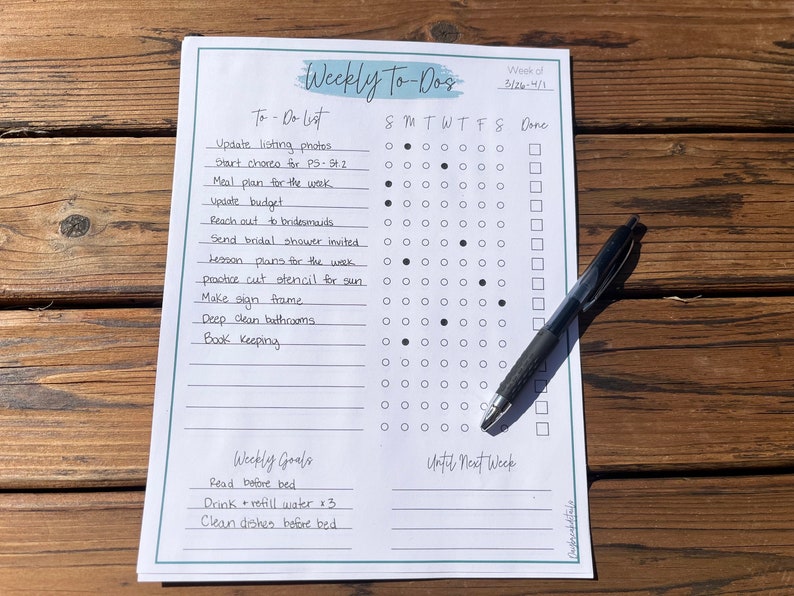 Weekly To-Dos
Week of
3/26-4/1
To - Do List
S M T W T F S Done
Update listing photos
Start choreo for PS - St. 2
Meal plan for the week
Update budget
Reach out to bridesmaids
Send bridal shower invited
Lesson plans for the week
practice cut stencil for sun
Make sign frame
Deep clean bathrooms
Book Keeping
Weekly Goals
Until Next Week
Read before bed
Drink + refill water x 3
Clean dishes before bed